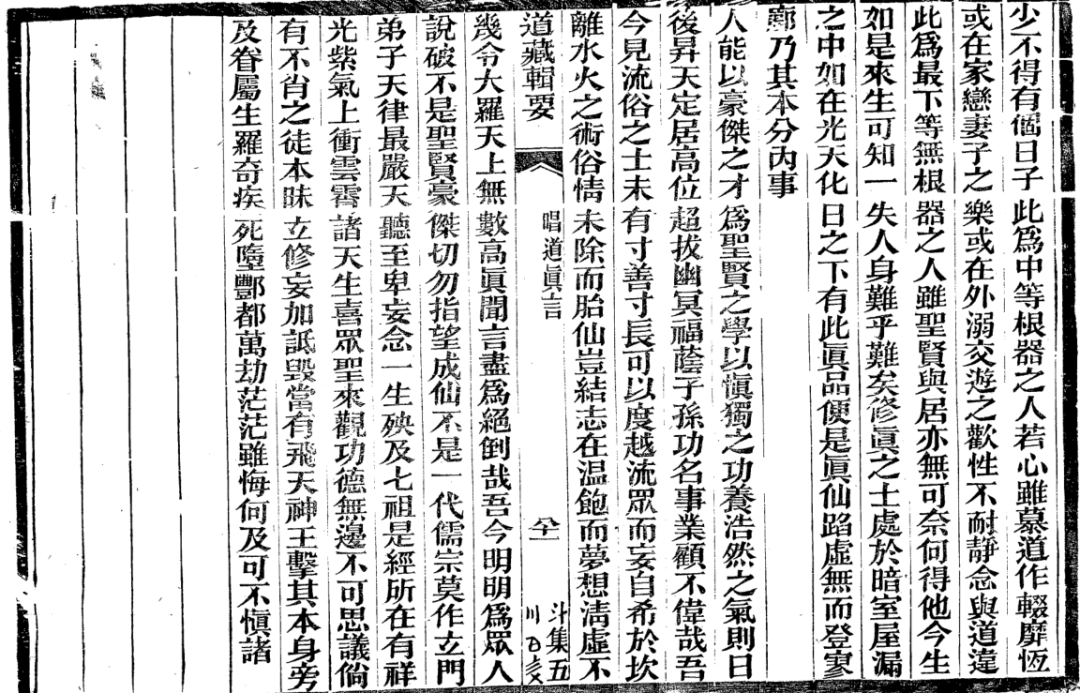 少不得有個日子此爲中等根器之人若心雖慕道作輟靡恆
或在家戀妻子之樂或在外溺交遊之歡性不耐靜念與道違
此爲最下等無根器之人雖聖賢與居亦無可奈何得他今生
如是來生可知一失人身難乎難矣修眞之士處於暗室屋漏
之中如在光天化日之下有此眞品便是眞仙蹈虛無而登寥
廓乃其本分內事
人能以豪傑之才爲聖賢之學以愼獨之功養浩然之氣則日
後昇天定居高位超拔幽冥福蔭子孫功名事業顧不偉哉吾
今見流俗之士未有寸善寸長可以度越流眾而妄自希於坎
離水火之術俗情未除而胎仙豈結志在温飽而夢想淸虛不
道藏輯要 唱道眞言 六十一 斗集五
幾令大羅天上無數高眞聞言盡爲絕倒哉吾今明明爲眾人
說破不是聖賢豪傑切勿指望成仙不是一代儒宗莫作立門
弟子天律最嚴天聽至卑妄念一生殃及七祖是經所在有祥
光紫氣上衝雲霄諸天生喜眾聖來觀功德無邊不可思議倘
有不肖之徒本昧立修妄加詆毀當有飛天神王擊其本身旁
及眷屬生羅奇疾死墮酆都萬劫茫茫雖悔何及可不愼諸